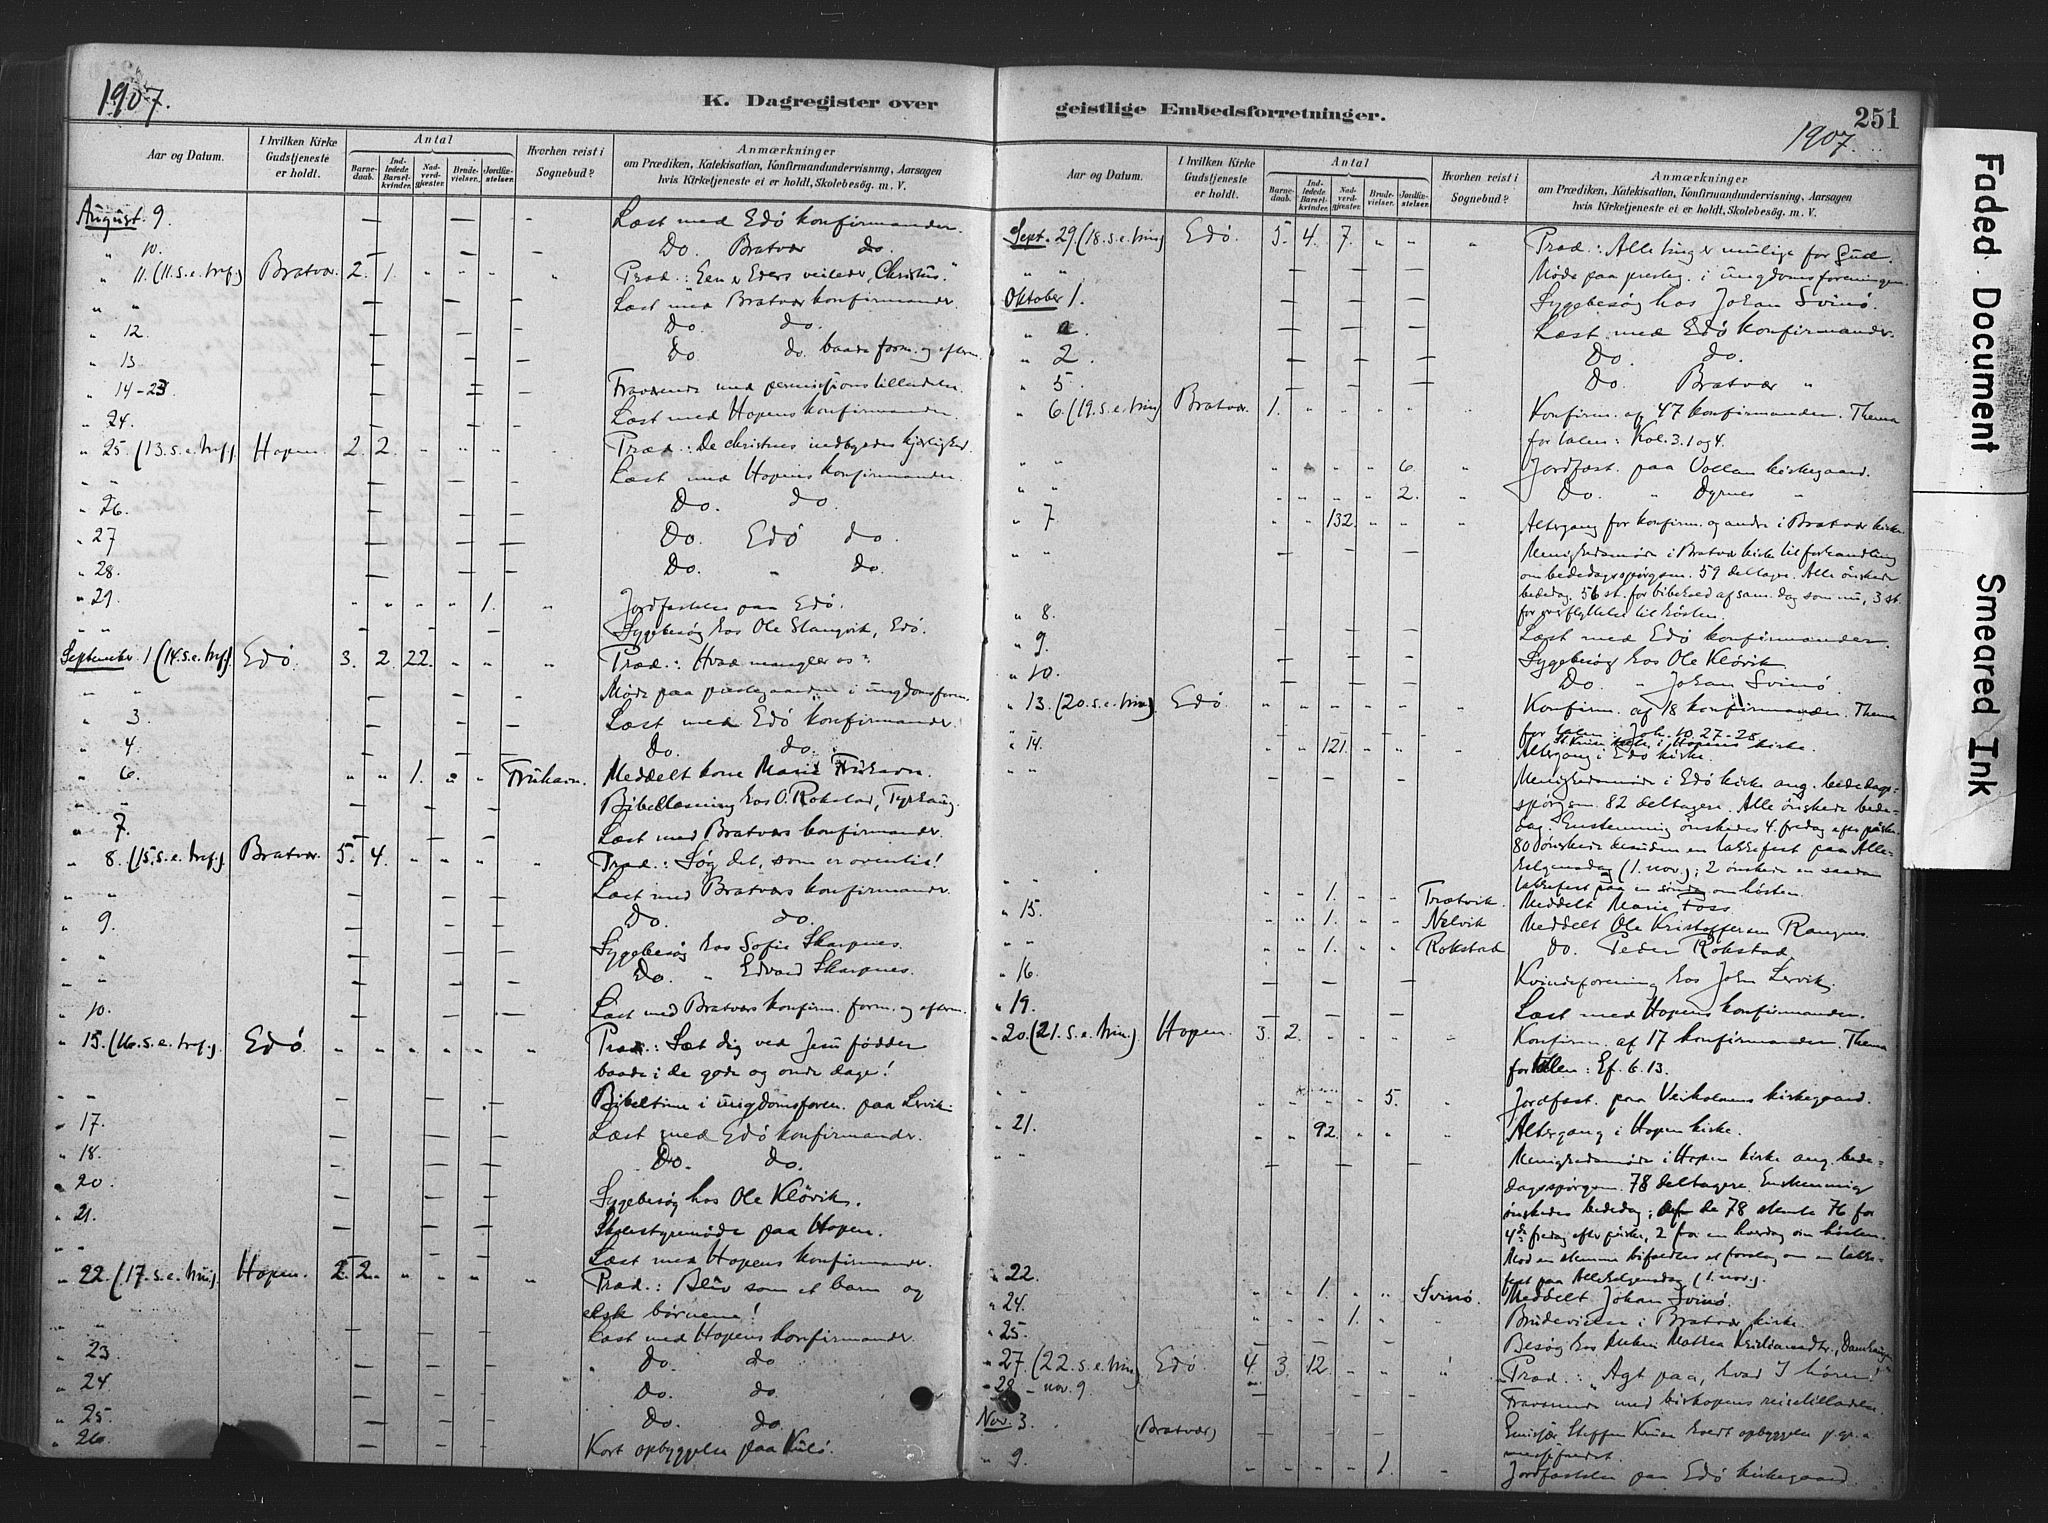 1907.
K. Dagregister over
Aar og Datum.
I hvilken Kirke Gudstjeneste er holdt.
Antal
Barne-daab.
Ind-ledede Barsel-kvinder.
Nad-verd-gjæster.
Brude-vielser.
Jordfæ-stelser.
Hvorhen reist i Sognebud?
Anmærkninger
om Prædiken, Katekisation, Konfirmandundervisning, Aarsagen
hvis Kirketjeneste ei er holdt, Skolebesøg. m. V.
August 9. — — — — — Læst med Edö konfirmander.
" 10. — — — — — Do. Bratvær do.
" 11. (11. s. e. tref.) Bratvær. 2. 1. " " " " Præd.: Een er Eders veileder, Christus."
" " — — — — — Læst med Bratvær konfirmander.
" 12 — — — — — Do. do.
" 13 — — — — — Do. do. baade form. og efterm.
" 14-23 — — — — — Fraværende med permissions tilladelse.
" 24. — — — — — Læst med Hopens konfirmander.
" 25 (13. s. e. tref.). Hopen. 2. 2. " " " " Præd.: De christnes indbyrdes kjærlighed.
" " — — — — — Læst med Hopens konfirmander.
" 26. — — — — — Do. do.
" 27 — — — — — Do. Edö do.
" 28. — — — — — Do. " do.
" 29. " " " " 1. " Jordfæstelse paa Edö.
" " — — — — — Sygebesøg hos Ole Slangvik, Edö.
September 1 (14. s. e. tref.). Edö. 3. 2. 22. " " " Præd.: Hvad mangler os?
" " — — — — — Møde paa prestegaarden i ungdomsforen.
" 3. — — — — — Læst med Edö konfirmander.
" 4. — — — — — Do. do.
" 6. " " 1. " " Fruhavn. Meddelt kone Marie Fruhavn.
" " — — — — — Bibellæsning hos O. Rokstad, Tyrhaug.
" 7. — — — — — Læst med Bratværs konfirmander.
" 8. (15. s. e. tref.). Bratvær. 5. 4. " " " " Præd.: Søg det, som er oventil!
" " — — — — — Læst med Bratværs konfirmander.
" 9. — — — — — Do. do.
" " — — — — — Sygebesøg hos Sofie Skarpnes.
" " — — — — — Do. " Edvard Skarpnes.
" 10. — — — — — Læst med Bratværs konfirm. form. og efterm.
" 15. (16. s. e. tref.). Edö. " " " " " " Præd.: Sæt dig ved Jesu födder
baade i de gode og onde dage!
" " — — — — — Bibeltime i ungdomsforen. paa Lervik.
" 17. — — — — — Læst med Edö konfirmander.
" 18. — — — — — Do. do.
" 20. — — — — — Sygebesøg hos Ole Klövik.
" 21. — — — — — Skolestyremøde paa Hopen.
" " — — — — — Læst med Hopens konfirmander.
" 22. (17. s. e. trin.). Hopen. 2. 2. " " " " Præd.: Bliv som et barn og
elsk börnene!
" " — — — — — Læst med Hopens konfirmander.
" 23 — — — — — " Do. do
" 24 — — — — — Do. do.
" 25. — — — — — Do. do.
" 26. — — — — — Kort opbyggelse paa Kulö.
geistlige Embedsforretninger.
251
1907.
Aar og Datum.
I hvilken Kirke Gudstjeneste er holdt.
Antal
Barne-daab.
Ind-ledede Barsel-kvinder.
Nad-verd-gjæster.
Brude-vielser.
Jordfæ-stelser.
Hvorhen reist i Sognebud?
Anmærkninger
om Prædiken, Katekisation, Konfirmandundervisning, Aarsagen
hvis Kirketjeneste ei er holdt, Skolebesøg. m. V.
Sept. 29. (18. s. e. trin) Edö. 5. 4. 7. " " " Præd.: Alle ting er mulige for Gud.
" " — — — — — Møde paa presteg. i ungdomsforeningen.
Oktober 1. — — — — — Sygebesøg hos Johan Svinö.
" 2. — — — — — Læst med Edö konfirmander.
" 2. — — — — — Do. do.
" 5. — — — — — Do. Bratvær "
" 6. (19. s. e. trin) Bratvær. 1. " " " " " Konfirm. af 47 konfirmander. Thema
for talen: Kol. 3. 1 og 4.
" " " " " " 6. " Jordfæst. paa Vollan kirkegaard.
" " " " " " 2. " Do. " Dyrnes "
" 7. " " 132. " " " Altergang for konfirm. og andre i Bratvær kirke.
" " — — — — — Menighedsmøde i Bratvær kirke til forhandling
om bededagsspørgsm. 59 deltagere. Alle ønskede
bededag. 56 st. for bibehold af sam. dag som nu, 3 st.
for forflyttelse til hösten.
" 8. — — — — — Læst med Edö konfirmander.
" 9. — — — — — Sygebesøg hos Ole Klövik
" 10. — — — — — Do. " Johan Svinö.
" 13. (20. s. e. trin). Edö. " " " " " " Konfirm. af 18 konfirmander. Thema
for talen: Joh. 10. 27-28.
" 14. " " 121. " " " Altergang i Edö kirke.
" " — — — — — Menighedsmøde i Edö kirke ang. bededags-
spørgsm. 82 deltagere. Alle ønskede bede-
dag. Enstemmig ønskedes 4. fredag efter paaske.
80 ønskede desuden en takkefest paa Alle-
helgensdag (1. nov.); 2 ønskede en saadan
takkefest paa en søndag om hösten.
" " " " 1. " " Trætvik. Meddelt Marie Foss.
" 15. " " 1. " " Nelvik Meddelt Ole Kristoffersen Rangnes.
" " " " 1. " " Rokstad Do. Peder Rokstad.
" 16. — — — — — Kvindeforening hos John Lervik.
" 19. — — — — — Læst med Hopens konfirmander.
" 20. (21. s. e. trin.) Hopen. 3. 2. " " " " Konfirm. af 17 konfirmander. Thema
for talen: Ef. 6. 13.
" " " " " " 5. " Jordfæst. paa Veiholmens kirkegaard.
" 21. " " 92. " " " Altergang i Hopen kirke.
" " — — — — — Menighedsmøde i Hopen kirke ang. bede-
dagsspørgsm. 78 deltagere. Enstemmig
ønskedes bededag; af de 78 stemte 76 for
4de fredag efter paaske, 2 for en hverdag om hösten.
Mod en stemme bifaldtes et forslag om en takke-
fest paa Allehelgensdag (1. nov.).
" 22. " " 1. " " Svinö. Meddelt Johan Svinö.
" 24. " " " 1. " " Brudevielse i Bratvær kirke.
" 25. — — — — — Besøg hos
" 27. (22. s. e. trin) Edö. 4. 3. 12. " " " Præd.: "Agt paa, hvad I hörer!"
" 28 - nov. 9. Fraværende med biskopens reisetilladelse.
Nov. 3. (Bratvær) Emissær Steffen holdt opbyggelse p. gr. a.
messefaldet.
" 9. 1. " Jordfæstelse paa Edö kirkegaard.
Faded Document
Smeared Ink